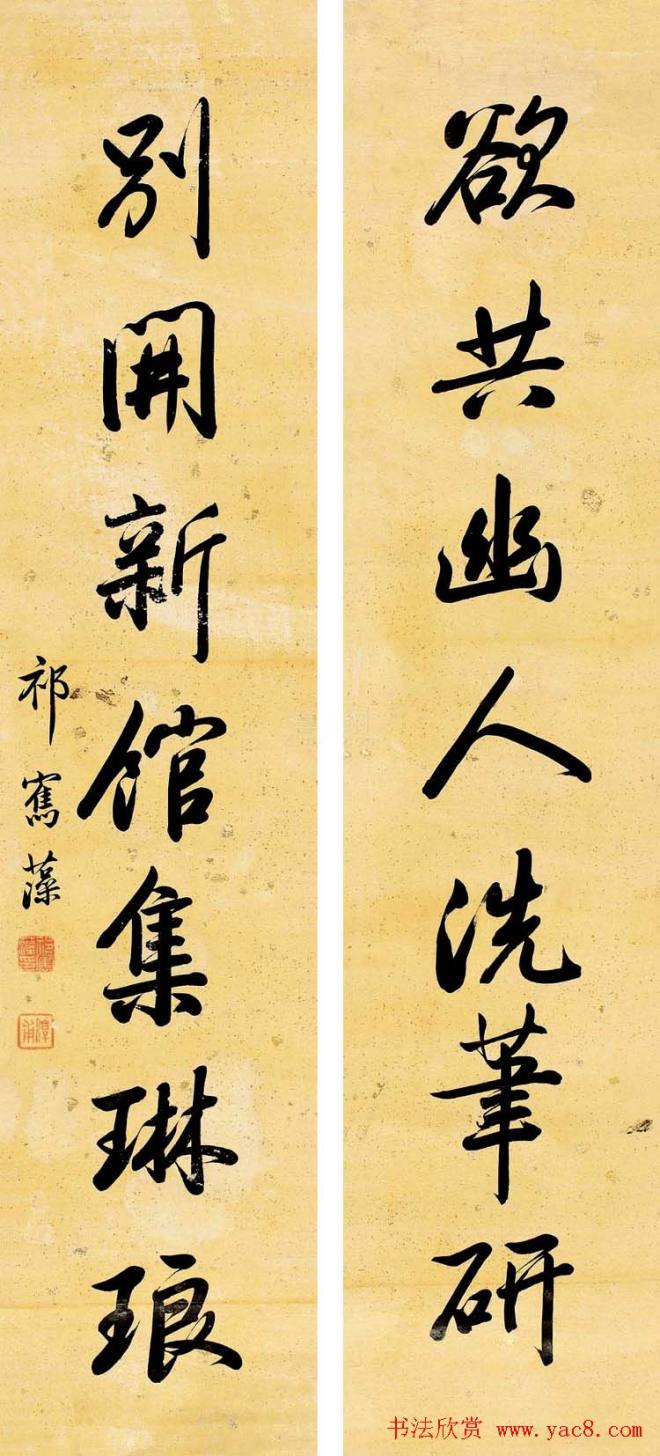 欲共幽人洗筆研
別開新館集琳琅
祁寯藻
淳甫
书法欣赏 www.yac8.com